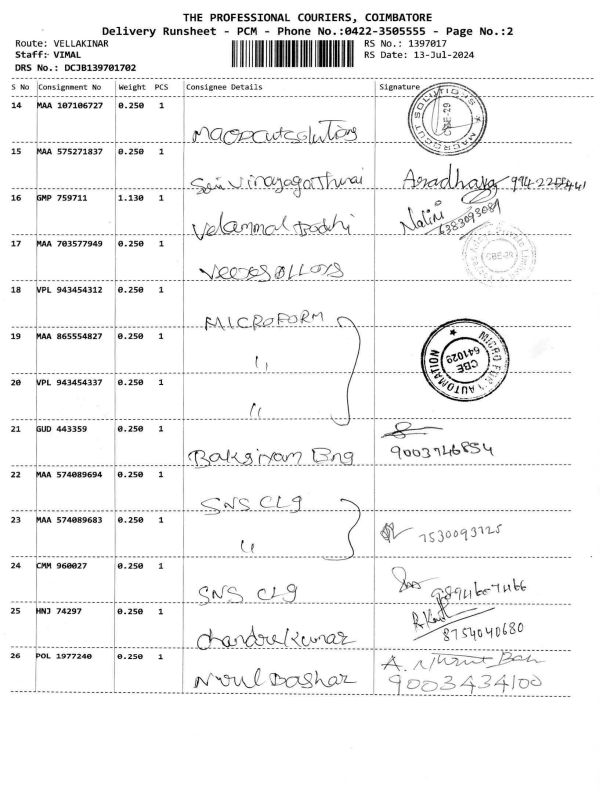 THE PROFESSIONAL COURIERS, COIMBATORE
Delivery Runsheet - PCM - Phone No.:0422-3505555 - Page No.:2
Route: VELLAKINAR RS No.: 1397017
Staff: VIMAL RS Date: 13-Jul-2024
DRS No.: DCJB139701702
S No Consignment No Weight PCS Consignee Details Signature
14 MAA 107106727 0.250 1
MACROCUT SOLUTIONS CBE-29
15 MAA 575271837 0.250 1
Sri Vinayaga Aradhaya
16 GMP 759711 1.130 1
Velammal Bodhi Nalini 6383093089
17 MAA 703577949 0.250 1
CBE-29
18 VPL 943454312 0.250 1
MICROFORM
19 MAA 865554827 0.250 1
"
MICRO FORM AUTOMATION CBE 641029
20 VPL 943454337 0.250 1
"
21 GUD 443359 0.250 1
Bakgiyam Eng 9003746854
22 MAA 574089694 0.250 1
SNS CLg
23 MAA 574089683 0.250 1
" 7530093125
24 CMM 960027 0.250 1
SNS CLg
25 HNJ 74297 0.250 1
chandrekumar 8754040680
26 POL 1977240 0.250 1
Nurul Bashar 9003434100